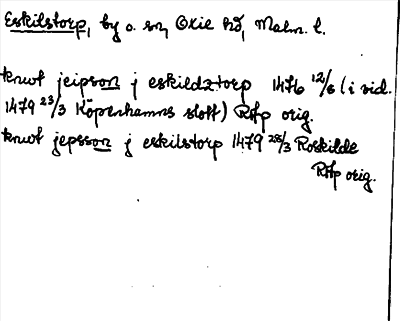 Eskilstorp, by o. sn, Oxie hd, Malm. l.
knwt jeipson j eskildztorp 1476 12/6 (i vid.
1479 23/3 Köpenhamns slott) RAp orig.
knwt jepson j eskilstorp 1479 28/3 Roskilde
RAp orig.